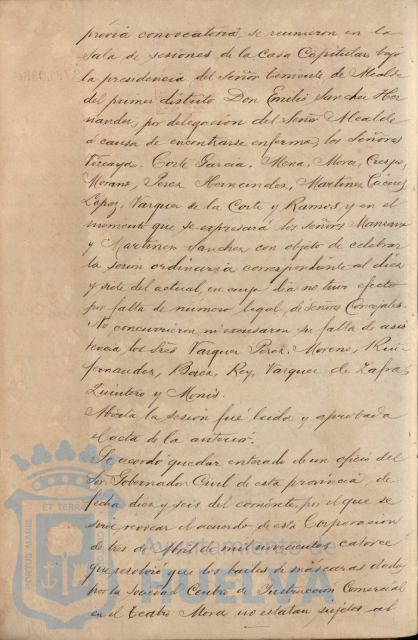 prévia convocatoria, se reunieron en la
Sala de sesiones de la Casa Capitular, bajo
la presidencia del Señor Teniente de Alcalde
del primer distrito Don Emilio Sanchez Her-
nandez, por delegacion del Señor Alcalde
á causa de encontrarse enfermo, los Señores
Vizcaya, Corte Garcia, Mena, Mora, Crespo,
Morano, Perez Hernandez, Martinez Cáceres,
Lopez, Vazquez de la Corte y Ramos, y en el
momento que se expresará los Señores Manzano
y Martinez Sanchez con objeto de celebrar
la sesion ordinaria correspondiente al diez
y siete del actual, en cuyo dia no tuvo efecto
por falta de numero legal de Señores Concejales.
No concurrieron ni excusaron su falta de asis
tencia, los Sres Vazquez Perez, Moreno, Ruiz
fernandez, Borea, Rey, Vazquez de Zafra,
Quintero y Monis.
Abierta la sesión fué leida y aprobada
el acta de la anterior.
Se acordó quedar enterado de un oficio del
Sor Gobernador Civil de esta provincia, de
fecha diez y seis del corriente, por el que se
sirve revocar el acuerdo de esta Corporacion
de tres de Abril de mil novecientos catorce
que resolvió que los bailes de máscaras dados
por la Sociedad Centro de Instruccion Comercial
en el Teatro Mora no estaban sujetos al
PORTUS MARIS ET TERRAE
Ayuntamiento de
HUELVA